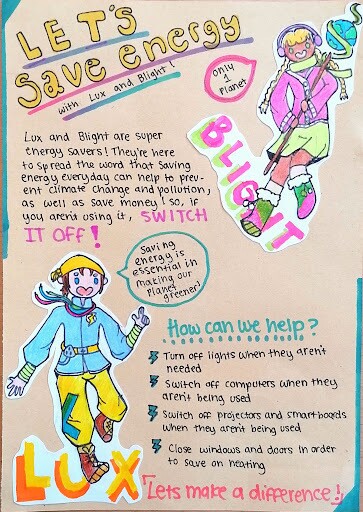 LET'S
Save energy
with Lux and Blight!
Only
1
Planet
BLIGHT
Lux and Blight are super
energy savers! They're here
to spread the word that saving
energy everyday can help to prev-
ent climate change and pollution,
as well as save money! So, if
you aren't using it, SWITCH
IT OFF!
Saving
energy is
essential in
making our
planet
greener!
How can we help?
Turn off lights when they aren't
needed
Switch off computers when they
aren't being used
Switch off projectors and smartboards
when they aren't being used
Close windows and doors in order
to save on heating
LUX
「Lets make a difference!」